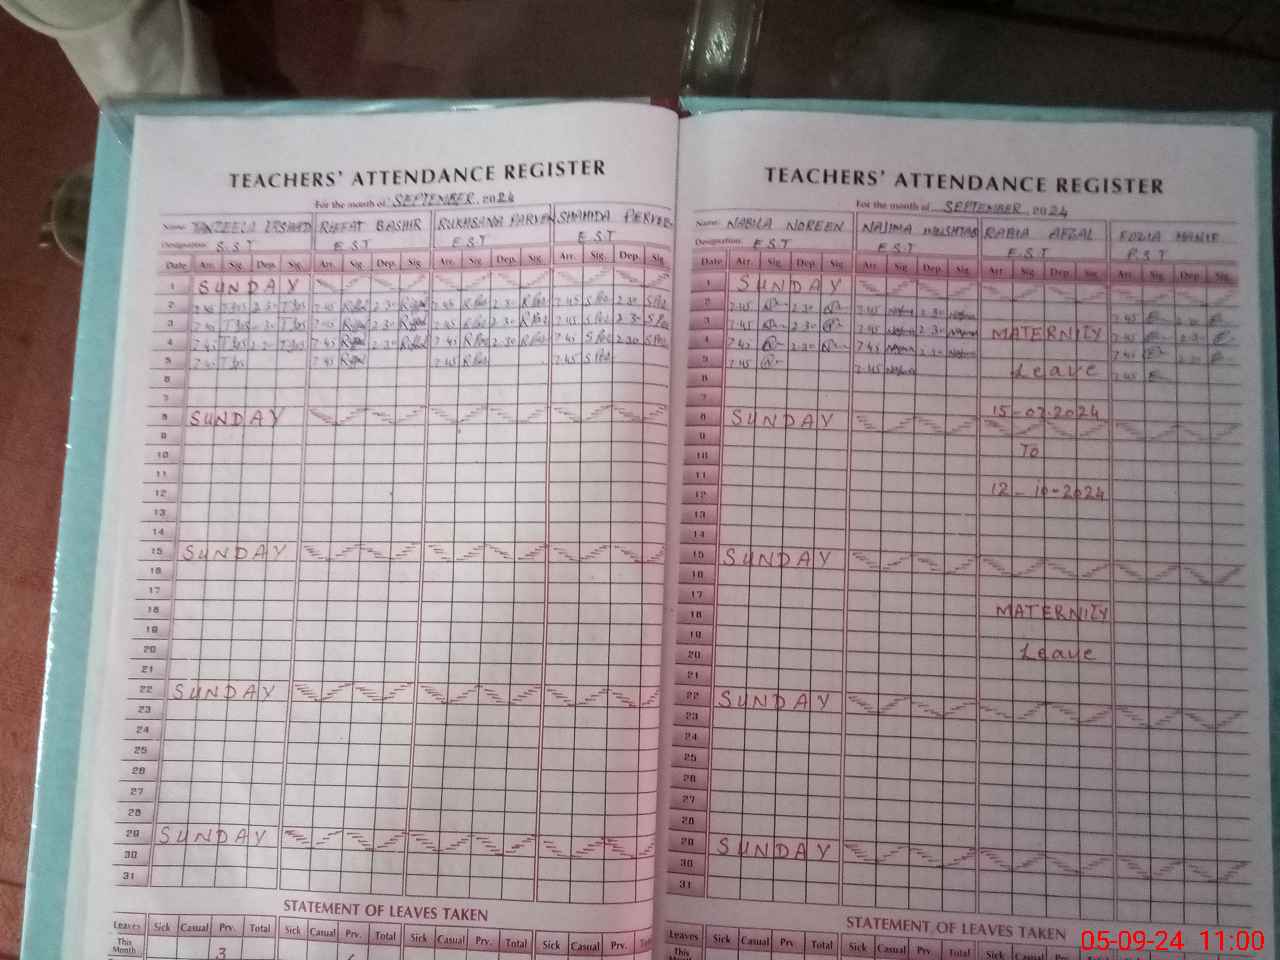 TEACHERS' ATTENDANCE REGISTER
For the month of SEPTEMBER, 2024
Name: TANZEELA IRSHAD RIFFAT BASHIR RUKHSANA PARVEEN SHAHIDA PERVEEN
Designation: S.S.T E.S.T E.S.T E.S.T
Date Arr. Sig. Dep. Sig. Arr. Sig. Dep. Sig. Arr. Sig. Dep. Sig. Arr. Sig. Dep. Sig.
1 SUNDAY
2 7.45 2.30 7.45 2.30 7.45 2.30 7.45 2.30
3 7.45 2.30 7.45 2.30 7.45 2.30 7.45 2.30
4 7.45 2.30 7.45 2.30 7.45 2.30 7.45 2.30
5 7.45 7.45 7.45 7.45
6
7
8 SUNDAY
9
10
11
12
13
14
15 SUNDAY
16
17
18
19
20
21
22 SUNDAY
23
24
25
26
27
28
29 SUNDAY
30
31
STATEMENT OF LEAVES TAKEN
Leaves Sick Casual Prv. Total Sick Casual Prv. Total Sick Casual Prv. Total Sick Casual Prv.
This Month 3
TEACHERS' ATTENDANCE REGISTER
For the month of SEPTEMBER, 2024
Name: NABILA NOREEN NAJIMA MUSHTAQ RABIA AFZAL FOZIA HANIF
Designation: E.S.T E.S.T E.S.T
Date Arr. Sig. Dep. Sig. Arr. Sig. Dep. Sig. Arr. Sig. Dep. Sig. Arr. Sig. Dep. Sig.
1 SUNDAY
2 7.45 2.30 7.45 2.30 7.45 2.30
3 7.45 2.30 7.45 2.30 MATERNITY
4 7.45 2.30 7.45 2.30 7.45 2.30
5 7.45 7.45 Leave 7.45
6
7 15-07-2024
8 SUNDAY
9 To
10
11 12-10-2024
12
13
14
15 SUNDAY
16
17
18 MATERNITY
19
20 Leave
21
22 SUNDAY
23
24
25
26
27
28
29 SUNDAY
30
31
STATEMENT OF LEAVES TAKEN
Leaves Sick Casual Prv. Total Sick Casual Prv. Total Sick Casual Prv. Total
This
05-09-24 11:00